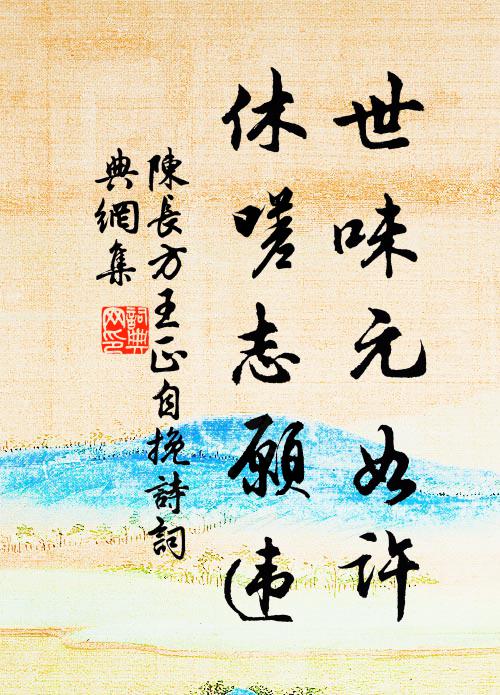 世味元如许
休嗟志願违
陳長方王正自挽詩詞
典網集
詞典
网印